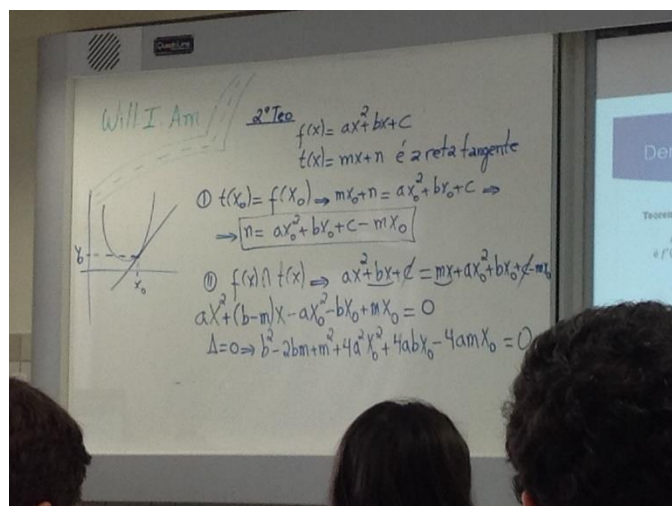 QuadLine
Will I. Am
2º Teo
f(x)= ax²+bx+c
t(x)= mx+n é a reta tangente
Ⓘ t(x₀)= f(x₀) ⇒ mx₀+n= ax₀²+bx₀+c ⇒
⇒ n= ax₀²+bx₀+c-mx₀
Ⓘ̲Ⓘ f(x)∩t(x) ⇒ ax²+bx+c=mx+ax₀²+bx₀+c-mx₀
ax²+(b-m)x-ax₀²-bx₀+mx₀=0
Δ=0⇒b²-2bm+m²+4a²x₀²+4abx₀-4amx₀=0
y₀
x₀
Der
Teorem